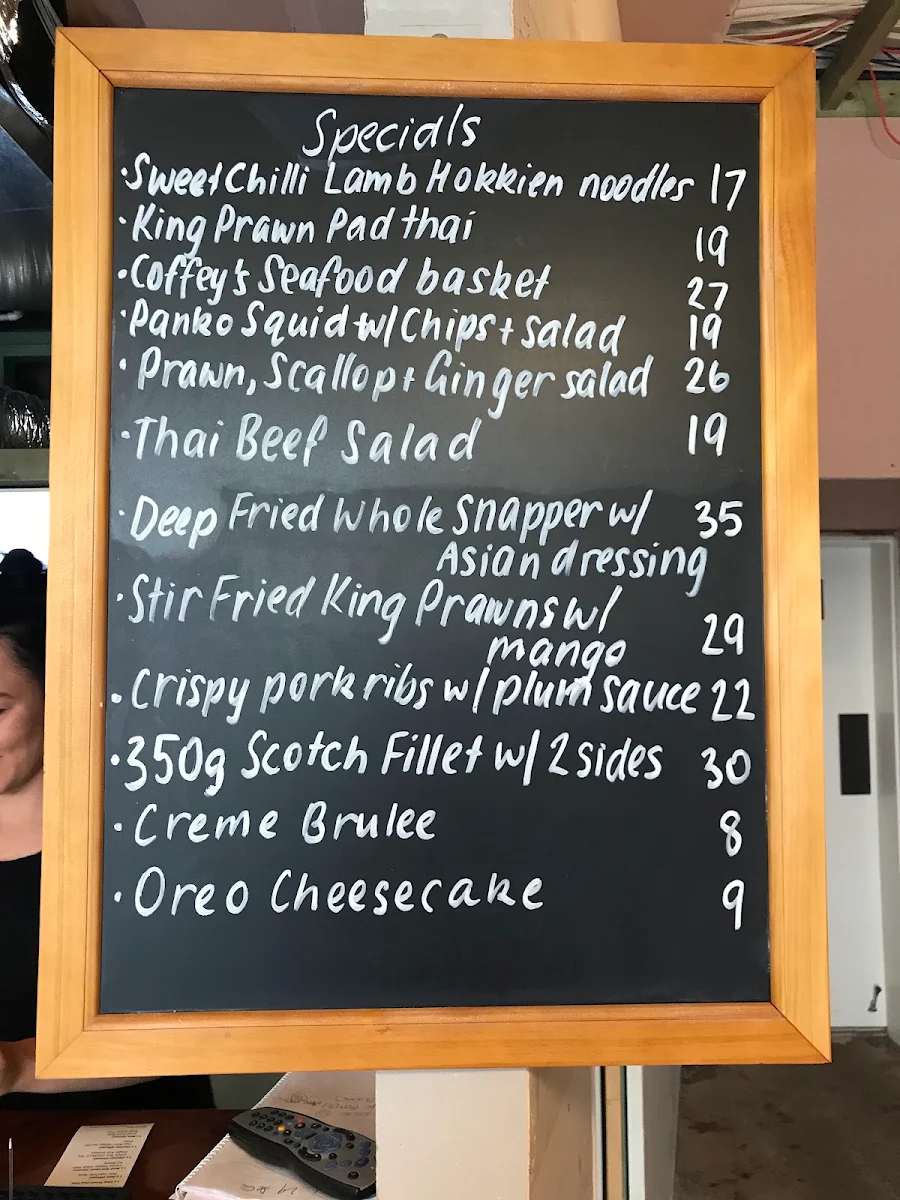 Specials
·Sweet Chilli Lamb Hokkien noodles 17
·King Prawn Pad thai 19
·Coffey's Seafood basket 27
·Panko Squid w/ Chips + salad 19
·Prawn, Scallop + Ginger salad 26
·Thai Beef Salad 19
·Deep Fried Whole Snapper w/ 35
Asian dressing
·Stir Fried King Prawns w/
mango 29
·Crispy pork ribs w/ plum sauce 22
·350g Scotch Fillet w/ 2 sides 30
·Creme Brulee 8
·Oreo Cheesecake 9